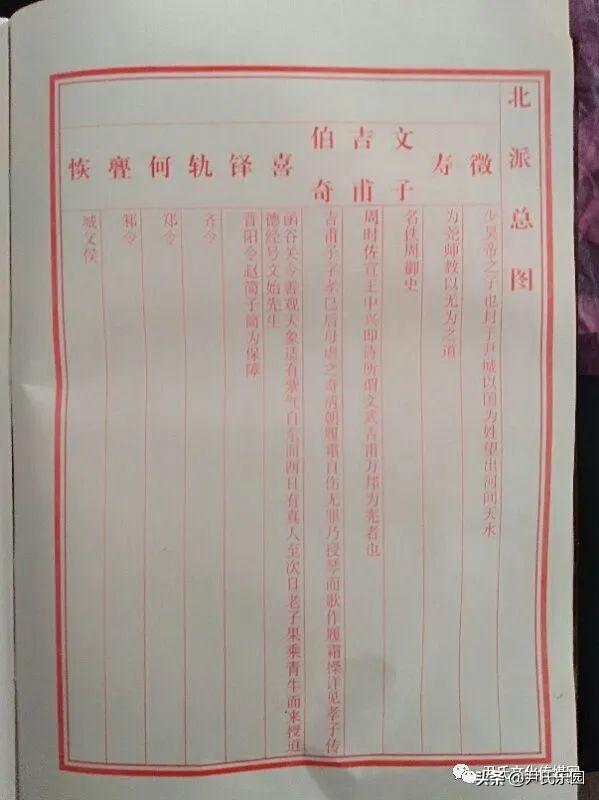 北派总图
微
少昊帝之子也封于尹城以国为姓望出河间天水
寿
为尧师教以无为之道
文子
名佚周御史
吉甫
周时佐宣王中兴即诗所谓文武吉甫万邦为宪者也
伯奇
吉甫子字孝已后母虐之奇清朝履霜自伤无罪乃授琴而歌作履霜操详见孝子传
喜
函谷关令善观天象适有紫气自东而西曰有真人至次日老子果乘青牛而来授道
德经号文始先生
铎
晋阳令赵简子简为保障
轨
齐令
何
郑令
祁令
恢
城父侯
头条 @尹氏乐园